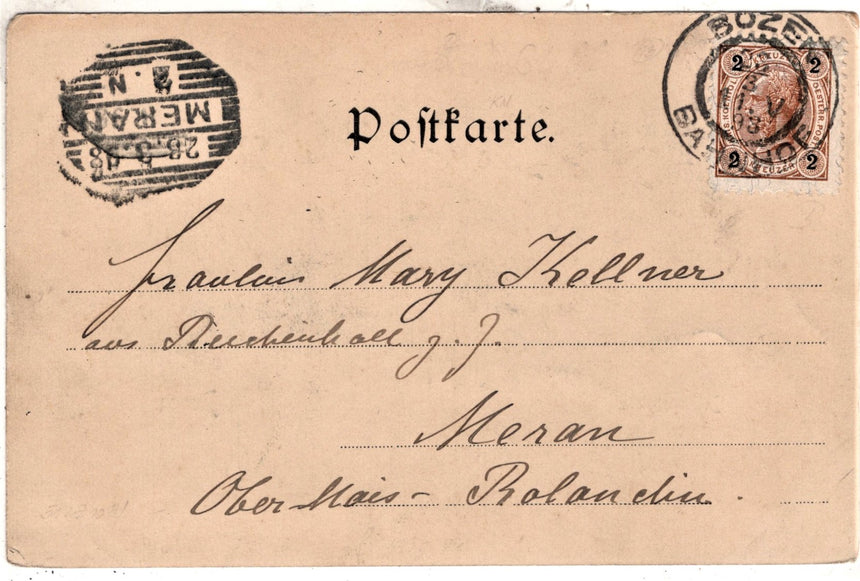 BOZEN
BAHNHOF
2 KREUZER 2
2 KREUZER 2
2. N
MERAN
28.3.98
Postkarte.
Fräulein Mary Kellner
aus Reichenhall z. Z.
Meran
Obermais – Rolandin.